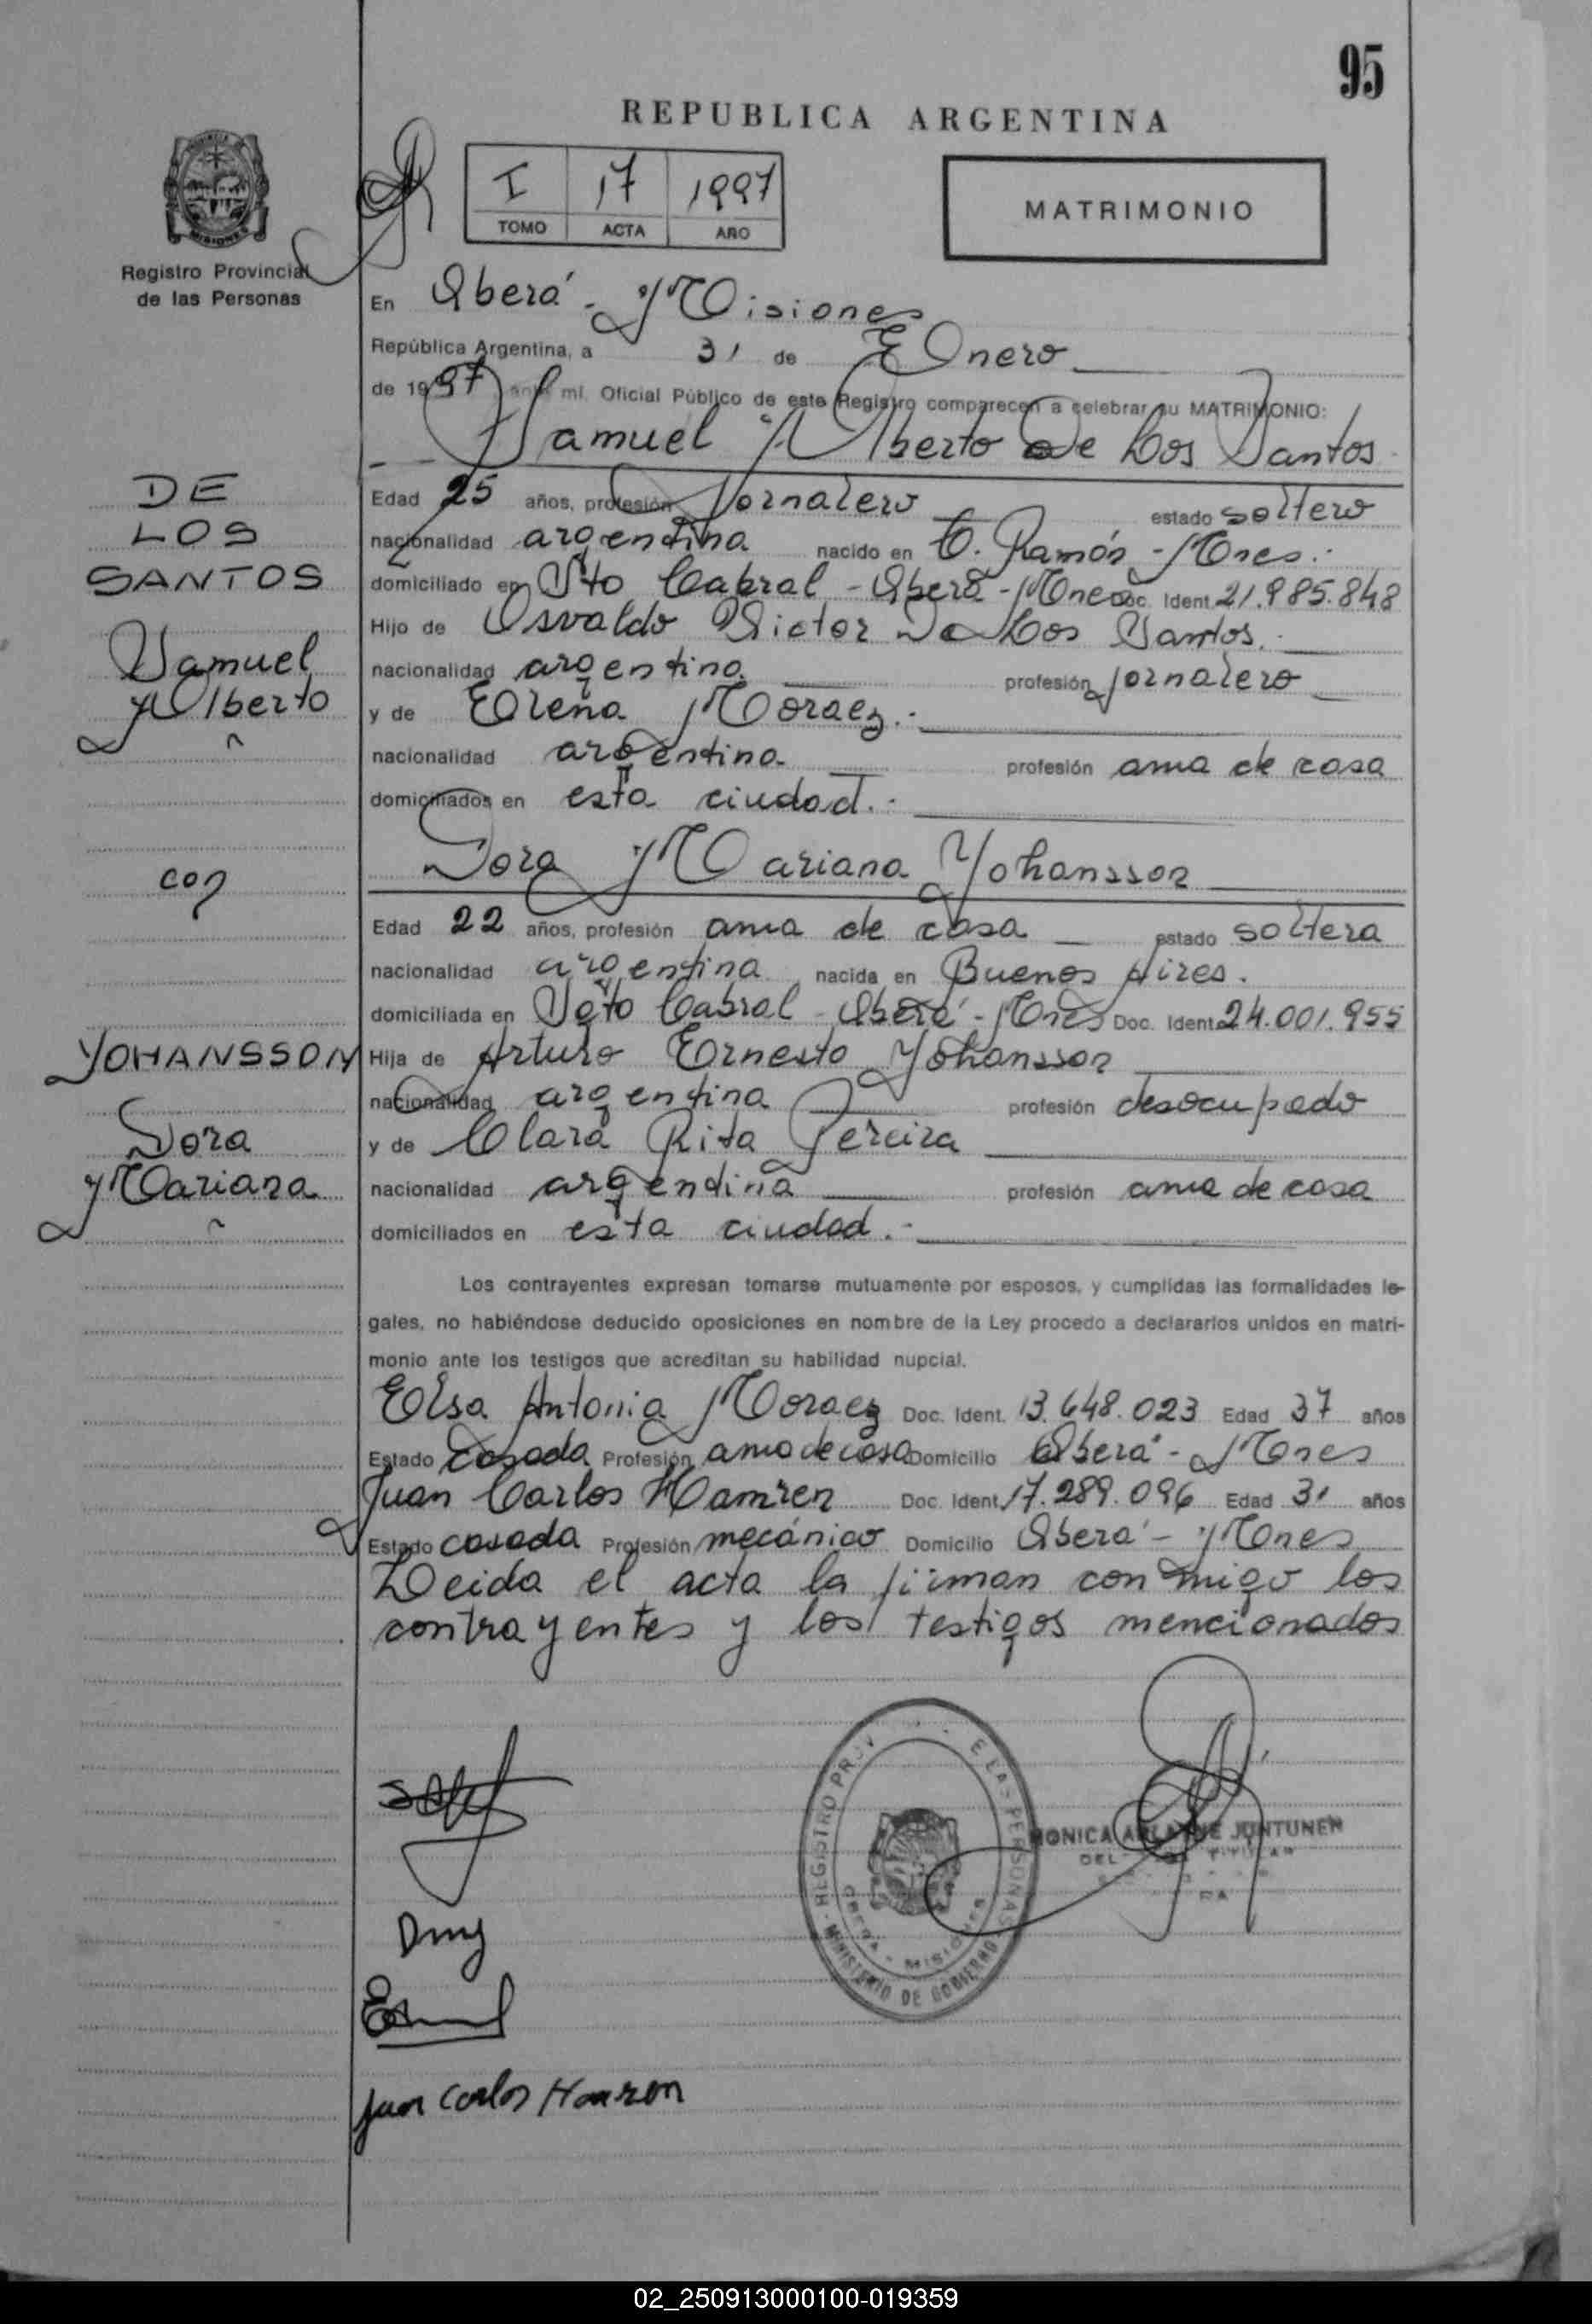 95
REPUBLICA ARGENTINA
I 17 1997
TOMO ACTA AÑO
MATRIMONIO
MISIONES
Registro Provincial
de las Personas
En Oberá - Misiones
República Argentina, a 31 de Enero
de 1997 ante mi, Oficial Público de este Registro comparecen a celebrar su MATRIMONIO:
Samuel Alberto De Los Santos
DE
LOS
SANTOS
Samuel
Alberto
Edad 25 años, profesión Jornalero estado soltero
nacionalidad argentina nacido en C. Ramón - Mnes.
domiciliado en Sto Cabral - Oberá - Mnes Doc. Ident. 21.985.848
Hijo de Osvaldo Victor De Los Santos.
nacionalidad argentina. profesión jornalero
y de Elena Moraez.
nacionalidad argentina. profesión ama de casa
domiciliados en esta ciudad.
con
Dora Mariana Yohansson
Edad 22 años, profesión ama de casa estado soltera
nacionalidad argentina nacida en Buenos Aires.
domiciliada en Sgto Cabral - Oberá - Mnes Doc. Ident. 24.001.955
YOHANSSON
Dora
Mariana
Hija de Arturo Ernesto Yohansson
nacionalidad argentina profesión desocupado
y de Clara Rita Pereira
nacionalidad argentina profesión ama de casa
domiciliados en esta ciudad.
Los contrayentes expresan tomarse mutuamente por esposos, y cumplidas las formalidades le-
gales, no habiéndose deducido oposiciones en nombre de la Ley procedo a declararlos unidos en matri-
monio ante los testigos que acreditan su habilidad nupcial.
Elsa Antonia Moraez Doc. Ident. 13.648.023 Edad 37 años
Estado casada Profesión ama de casa Domicilio Oberá - Mnes
Juan Carlos Hamren Doc. Ident. 17.289.096 Edad 31 años
Estado casada Profesión mecánico Domicilio Oberá - Mnes
Leida el acta la firman con migo los
contrayentes y los testigos mencionados
REGISTRO PROV E LAS PERSONAS
OBERA - MISIONES
MINISTERIO DE GOBIERNO
MONICA JUNTUNEN
Juan Carlos Hamren
02_250913000100-019359